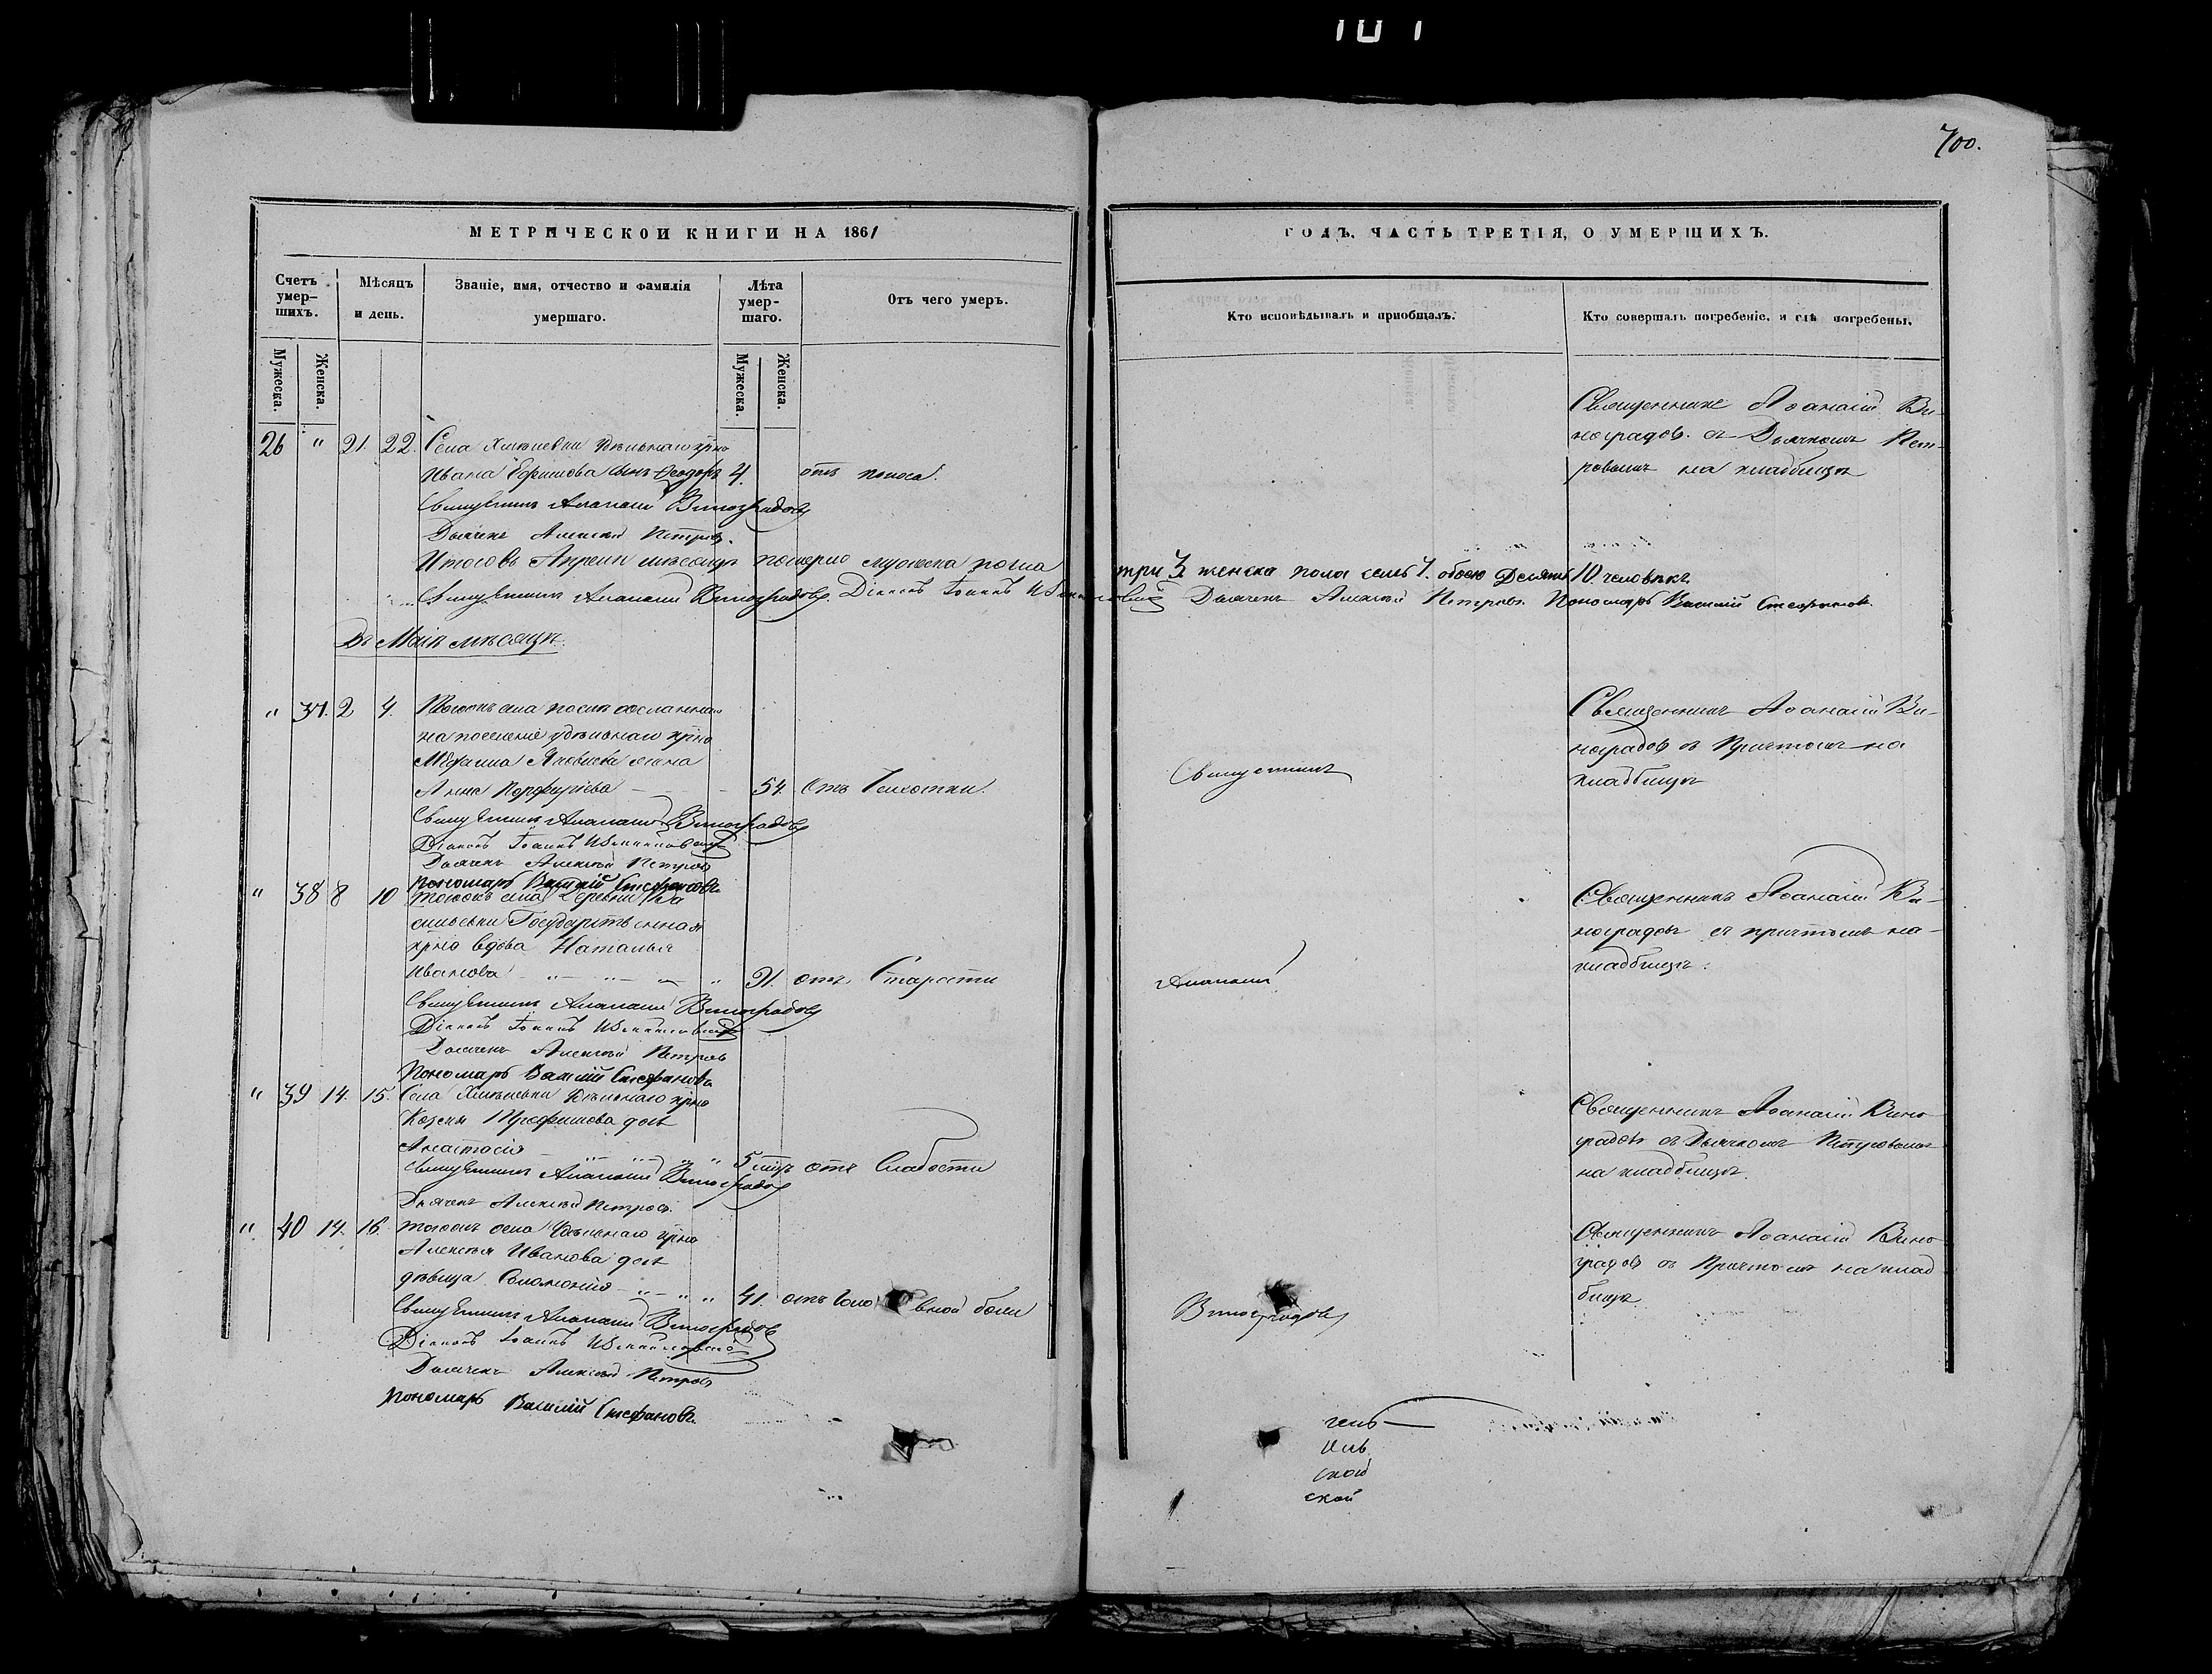 101
700.
МЕТРИЧЕСКОИ КНИГИ НА 1861
Счетъ умер-
шихъ.
Мѣсяцъ
и день.
Званіе, имя, отчество и фамилія
умершаго.
Лѣта
умер-
шаго.
Отъ чего умеръ.
Мужеска.
Женска.
Мужеска.
Женска.
26 " 21. 22. Села удѣльнаго крно
Ивана Ефимова сынъ Ѳеодоръ 4. отъ поноса.
Священникъ Аѳанасій Виноградовъ
Дьячекъ Алексѣй Петровъ.
Итого въ Апрелѣ мѣсяцѣ померло мужеска пола
Священникъ Аѳанасій Виноградовъ. Діаконъ Іоаннъ
Въ Маіѣ мѣсяцѣ.
" 37. 2 4. Тогожъ села после сосланнаго
на поселеніе удѣльнаго крно
Яковлева жена
Анна Порфирьева 54. отъ Чахотки.
Священникъ Аѳанасій Виноградовъ
Діаконъ Іоаннъ
Дьячекъ Алексѣй Петровъ
Пономарь Василій Стефановъ
" 38 8 10 тогожъ села деревни Ва
сильевки Государственнаго
крно вдова Наталья
Иванова 91. отъ Старости
Священникъ Аѳанасій Виноградовъ
Діаконъ Іоаннъ
Дьячекъ Алексѣй Петровъ
Пономарь Василій Стефановъ
" 39 14. 15. Села удѣльнаго крно
Козмы Трофимова дочь
Анастасія 5 мцъ отъ Слабости
Священникъ Аѳанасій Виноградовъ
Дьячекъ Алексѣй Петровъ.
" 40 14. 16. тогожъ села Удѣльнаго крно
Алексѣя Иванова дочь
дѣвица Соломонія 41. отъ Головной боли
Священникъ Аѳанасій Виноградовъ
Діаконъ Іоаннъ
Дьячекъ Алексѣй Петровъ
Пономарь Василій Стефановъ
ГОДЪ, ЧАСТЬ ТРЕТІЯ, О УМЕРШИХЪ.
Кто исповѣдывалъ и приобщалъ.
Кто совершалъ погребеніе, и гдѣ погребены.
Священникъ Аѳанасій Ви-
ноградовъ съ Дьячкомъ Пет-
ровымъ на кладбищѣ
три 3. женска пола семь 7. обоего Десять 10 человѣкъ.
Дьячекъ Алексѣй Петровъ. Пономарь Василій Стефановъ.
Священникъ Аѳанасій Ви-
ноградовъ съ Причтомъ на
кладбищѣ
Священникъ
Священникъ Аѳанасій Ви-
ноградовъ съ причтомъ на
кладбищѣ.
Аѳанасій
Священникъ Аѳанасій Вино
градовъ съ Дьячкомъ Петровымъ
на кладбищѣ.
Священникъ Аѳанасій Вино
градовъ съ Причтомъ на клад
бищѣ
Виноградовъ
ской